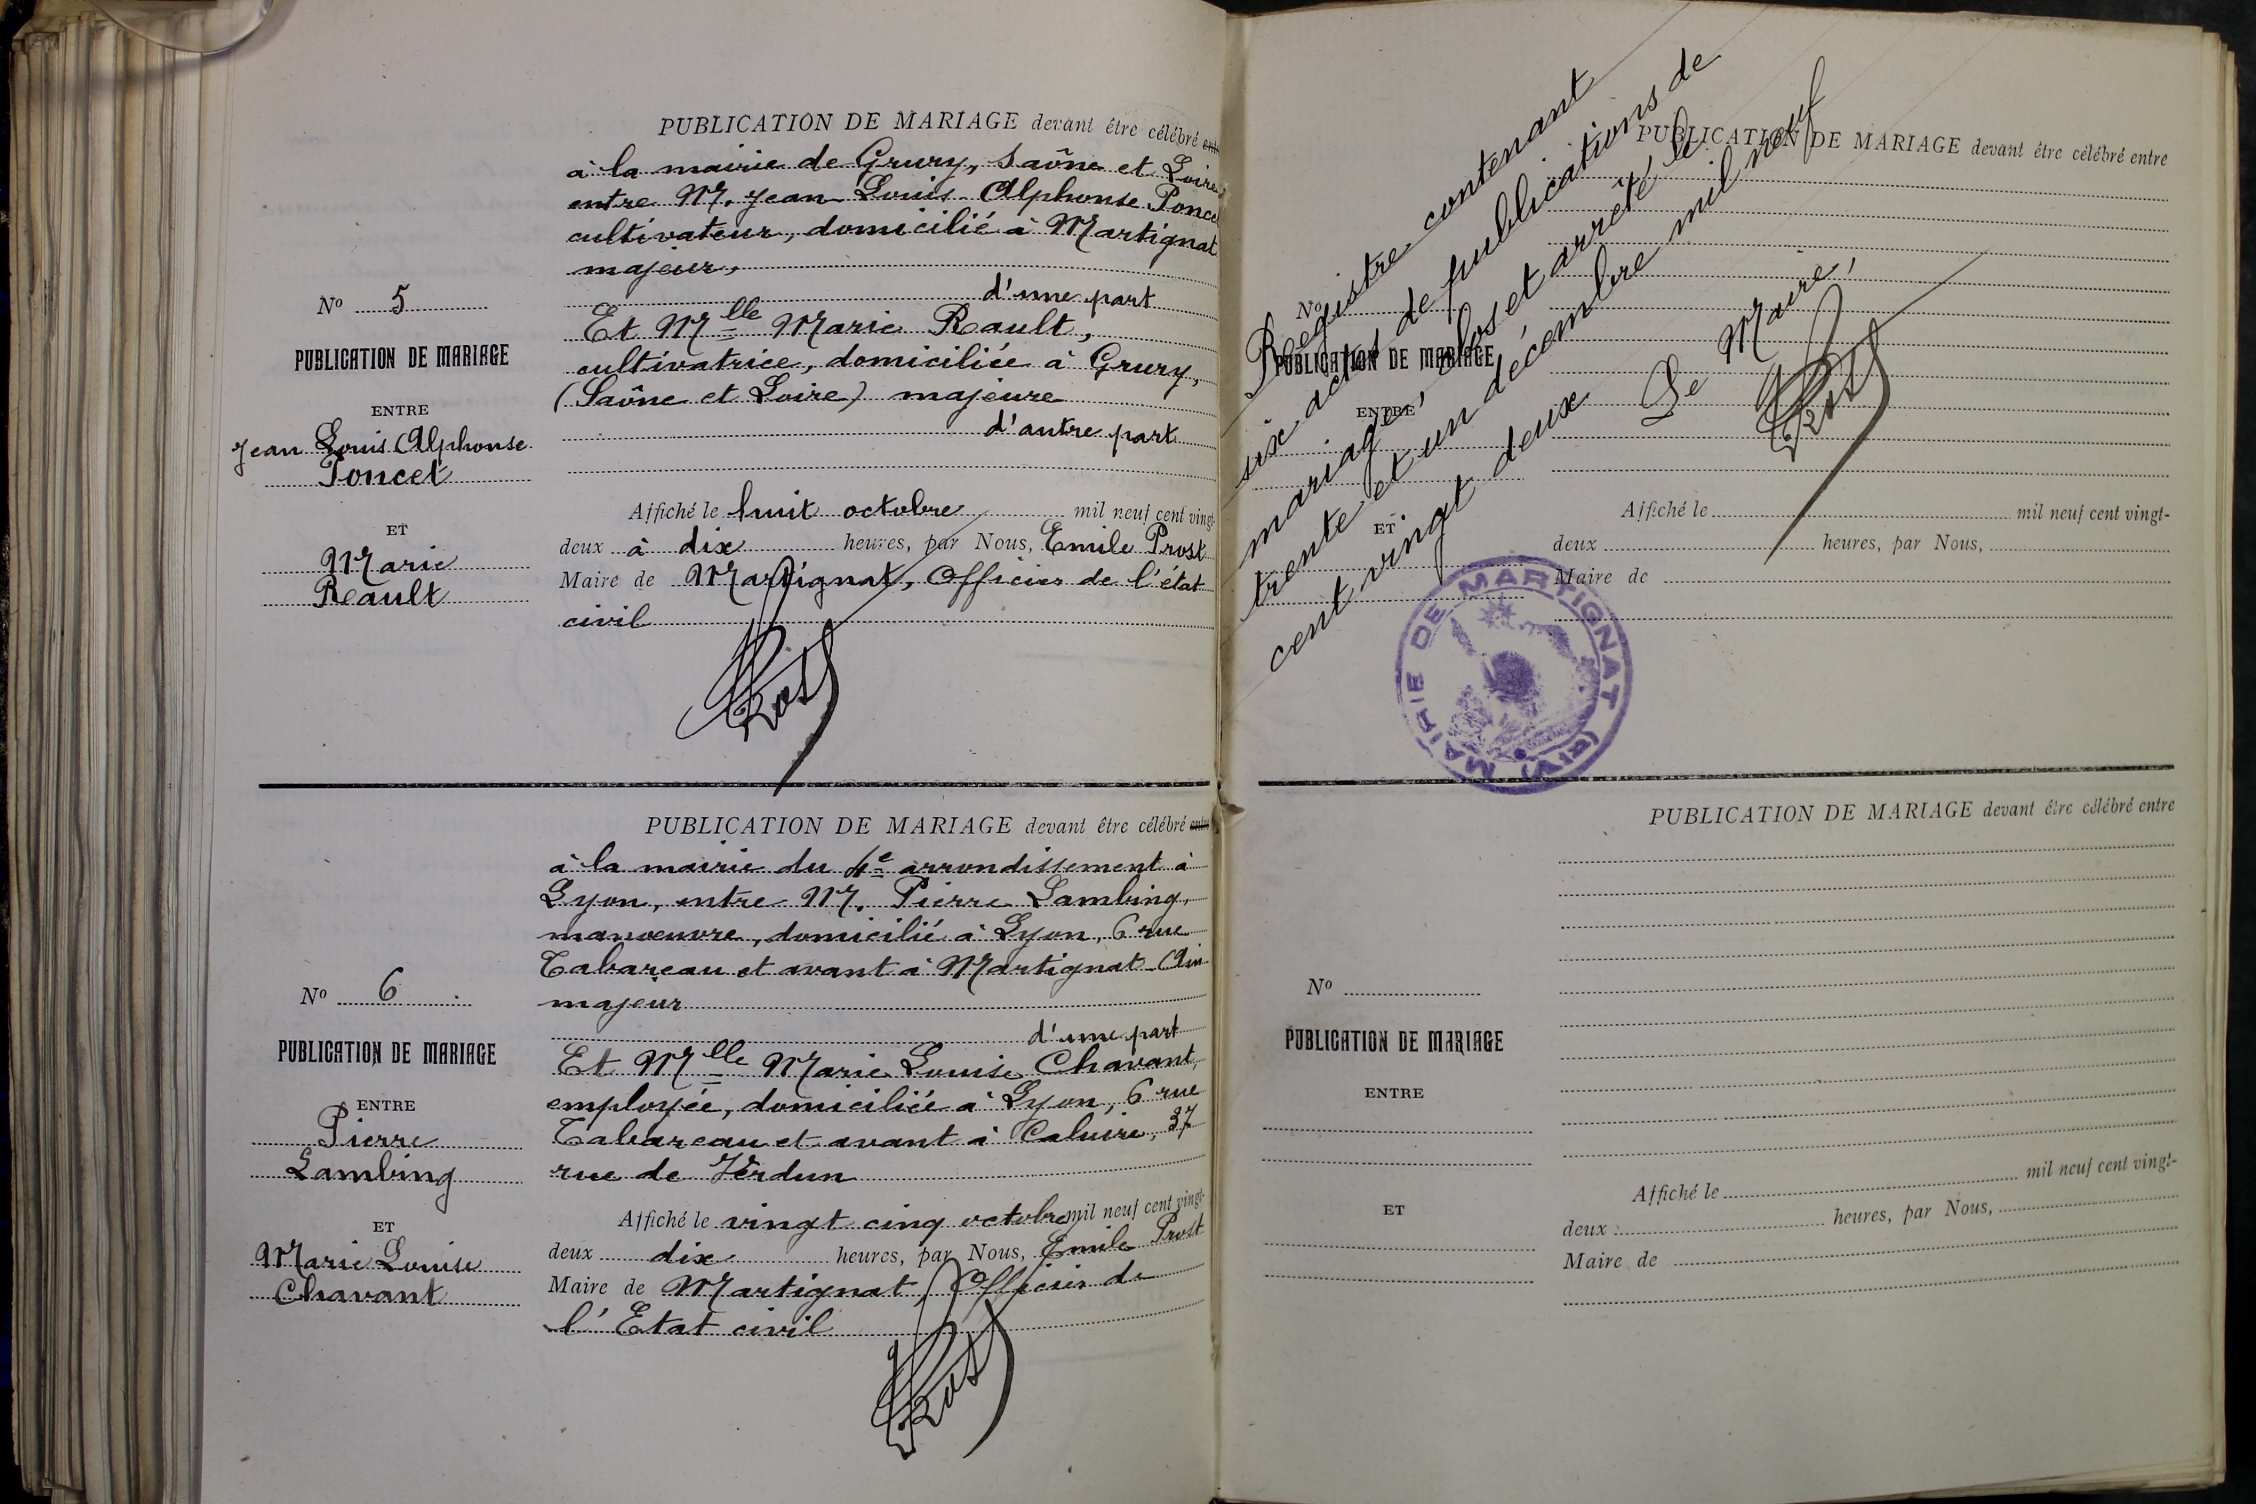 PUBLICATION DE MARIAGE devant être célébré entre
à la mairie de Grury, Saône et Loire,
entre Mr. Jean Louis Alphonse Poncet
cultivateur, domicilié à Martignat
majeur,
d'une part
Et Mlle Marie Rault,
cultivatrice, domiciliée à Grury,
(Saône et Loire) majeure
d'autre part
No 5
PUBLICATION DE MARIAGE
ENTRE
Jean Louis Alphonse
Poncet
ET
Marie
Rault
Affiché le huit octobre mil neuf cent vingt-
deux à dix heures, par Nous, Emile Prost
Maire de Martignat, Officier de l'état
civil
Prost
PUBLICATION DE MARIAGE devant être célébré entre
à la mairie du 4e arrondissement à
Lyon, entre Mr. Pierre Lambing,
manoeuvre, domicilié à Lyon, 6 rue
Tabareau et avant à Martignat Ain
majeur
d'une part
Et Mlle Marie Louise Chavant,
employée, domiciliée à Lyon, 6 rue
Tabareau et avant à Caluire, 37
rue de Verdun
No 6
PUBLICATION DE MARIAGE
ENTRE
Pierre
Lambing
ET
Marie Louise
Chavant
Affiché le vingt cinq octobre mil neuf cent vingt-
deux dix heures, par Nous, Emile Prost
Maire de Martignat, Officier de
l'Etat civil
Prost
PUBLICATION DE MARIAGE devant être célébré entre
No
PUBLICATION DE MARIAGE
ENTRE
ET
Affiché le mil neuf cent vingt-
deux heures, par Nous,
Maire de
Registre contenant
six actes de publications de
mariage, clos et arrêté le
trente et un décembre mil neuf
cent vingt deux
Le Maire,
Prost
MAIRIE DE MARTIGNAT (AIN)
PUBLICATION DE MARIAGE devant être célébré entre
No
PUBLICATION DE MARIAGE
ENTRE
ET
Affiché le mil neuf cent vingt-
deux heures, par Nous,
Maire de